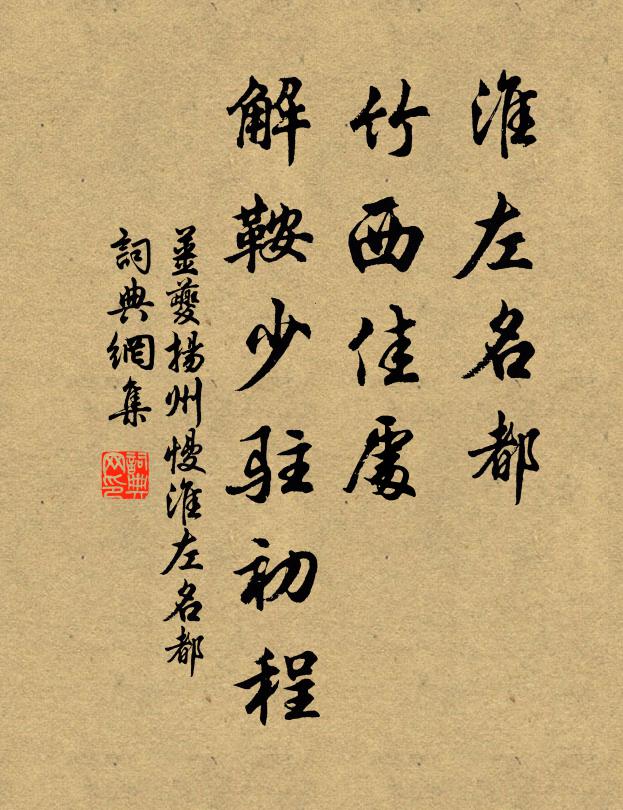 淮左名都
竹西佳處
解鞍少駐初程
姜夔揚州慢淮左名都
詞典網集
詞典网印